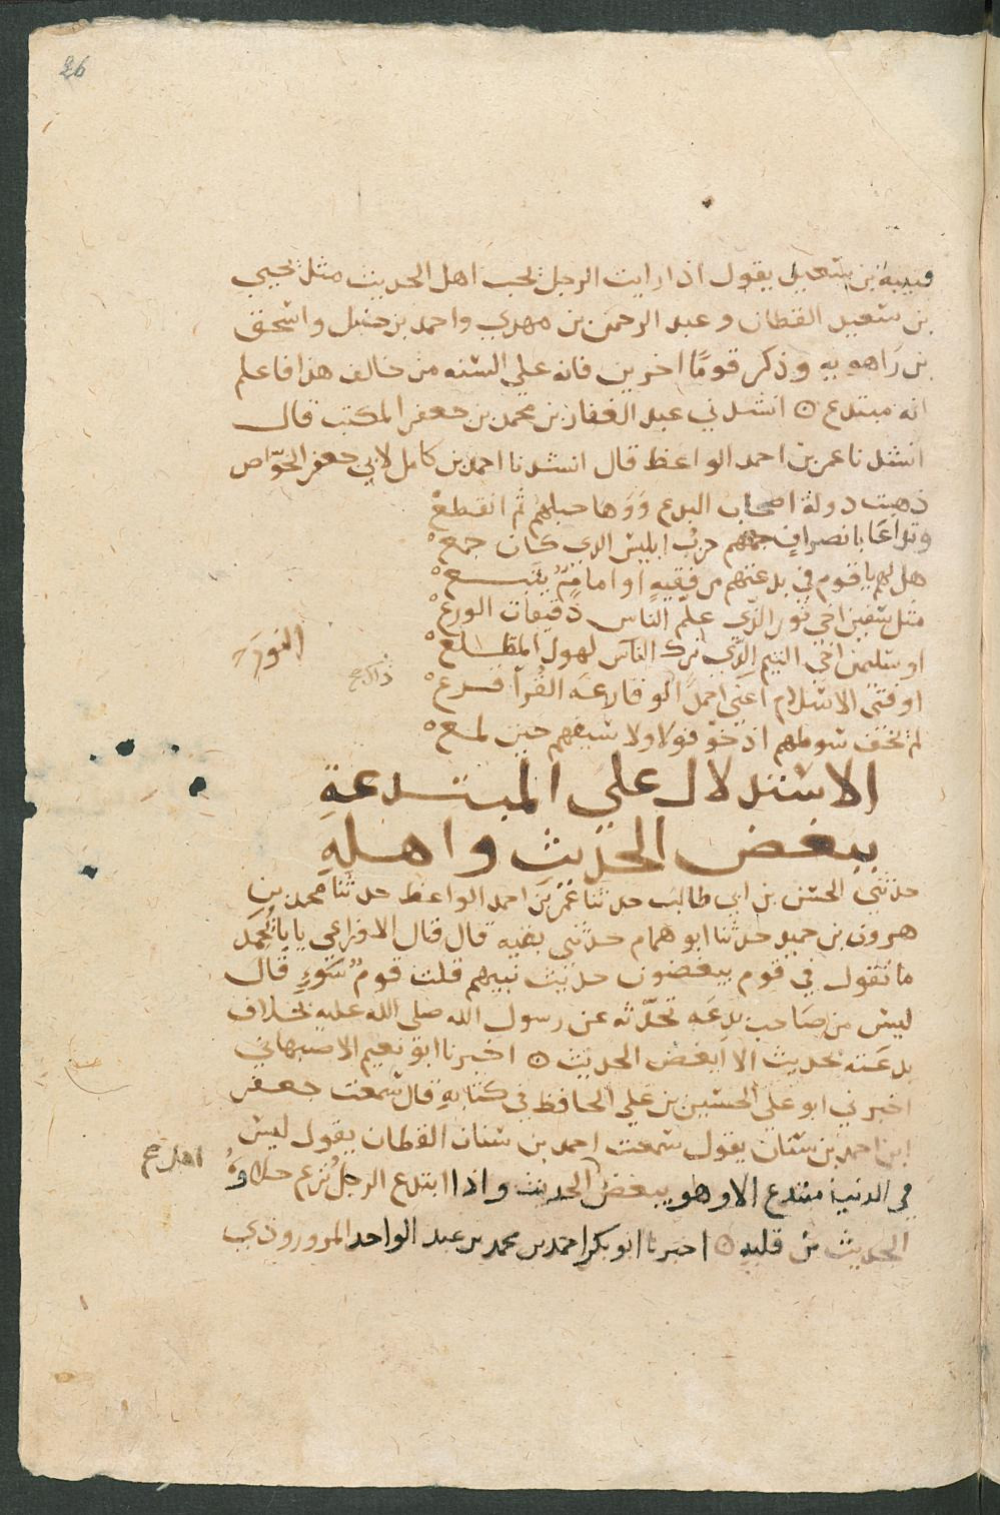 26
قتيبة بن سعيد يقول اذا رايت الرجل يحب اهل الحديث مثل يحيى
بن سعيد القطان وعبد الرحمن بن مهدي واحمد بن حنبل واسحق
بن راهويه وذكر قومًا اخرين فانه علي السنه من خالف هذا فاعلم
انه مبتدع ۞ انشدني عبد الغفار بن محمد بن جعفر المكتب قال
انشدنا عمر بن احمد الواعظ قال انشدنا احمد بن كامل لابي جعفر الخوّاص
ذهبت دولة اصحاب البدع وَوَها حبلهم ثم انقطع
وتداعَا بانصرافٍ جمعهم حزبُ ابليس الذي كان جمع
هل لهم يا قوم في بدعتهم من فقيهٍ او امامٍ يتّبع
مثل سفين اخي ثور الذي علّم الناس دقيقات الورع
او سليمن اخي التيم الذي ترك الناس لهول المطلع
النور
ذاك صح
او فتى الاسلام اعني احمدًا لو قارعه القرآ قرع
لم يخف سوطهم اذ خوّفوا ولا سيفهم حين لمع
الاستدلال علي المبتدعةِ
ببغض الحديثِ واهلهِ
حدثني الحسن بن ابي طالب حدثنا عمر بن احمد الواعظ حدثنا محمد بن
هرون بن حميد حدثنا ابو همام حدثني بقيه قال قال الاوزاعي يابا يُحْمِد
ما تقول في قوم يبغضون حديث نبيهم قلت قومُ سَوءٍ قال
ليس من صَاحب بدعَه تحدّثه عن رسول الله صلى الله عليه بخلاف
بدعَته بحديث الا ابغض الحديث ۞ اخبرنا ابو نعيم الاصبهاني
اخبرني ابو علي الحسين بن علي الحافظ في كتابهِ قال سمعت جعفر
ابن احمد بن سنان يقول سمعت احمد بن سنان القطان يقول ليس
اهل صح
في الدنيا مبتدع الا وهو يبغض الحديث واذا ابتدع الرجل نُزع حلاوَةُ
الحديث من قلبهِ ۞ اخبرنا ابو بكر احمد بن محمد بن عبد الواحد المروروذي